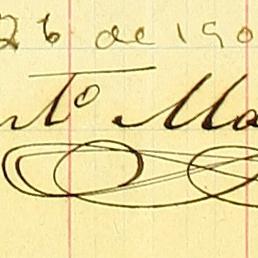 26 de 190
nto Ma